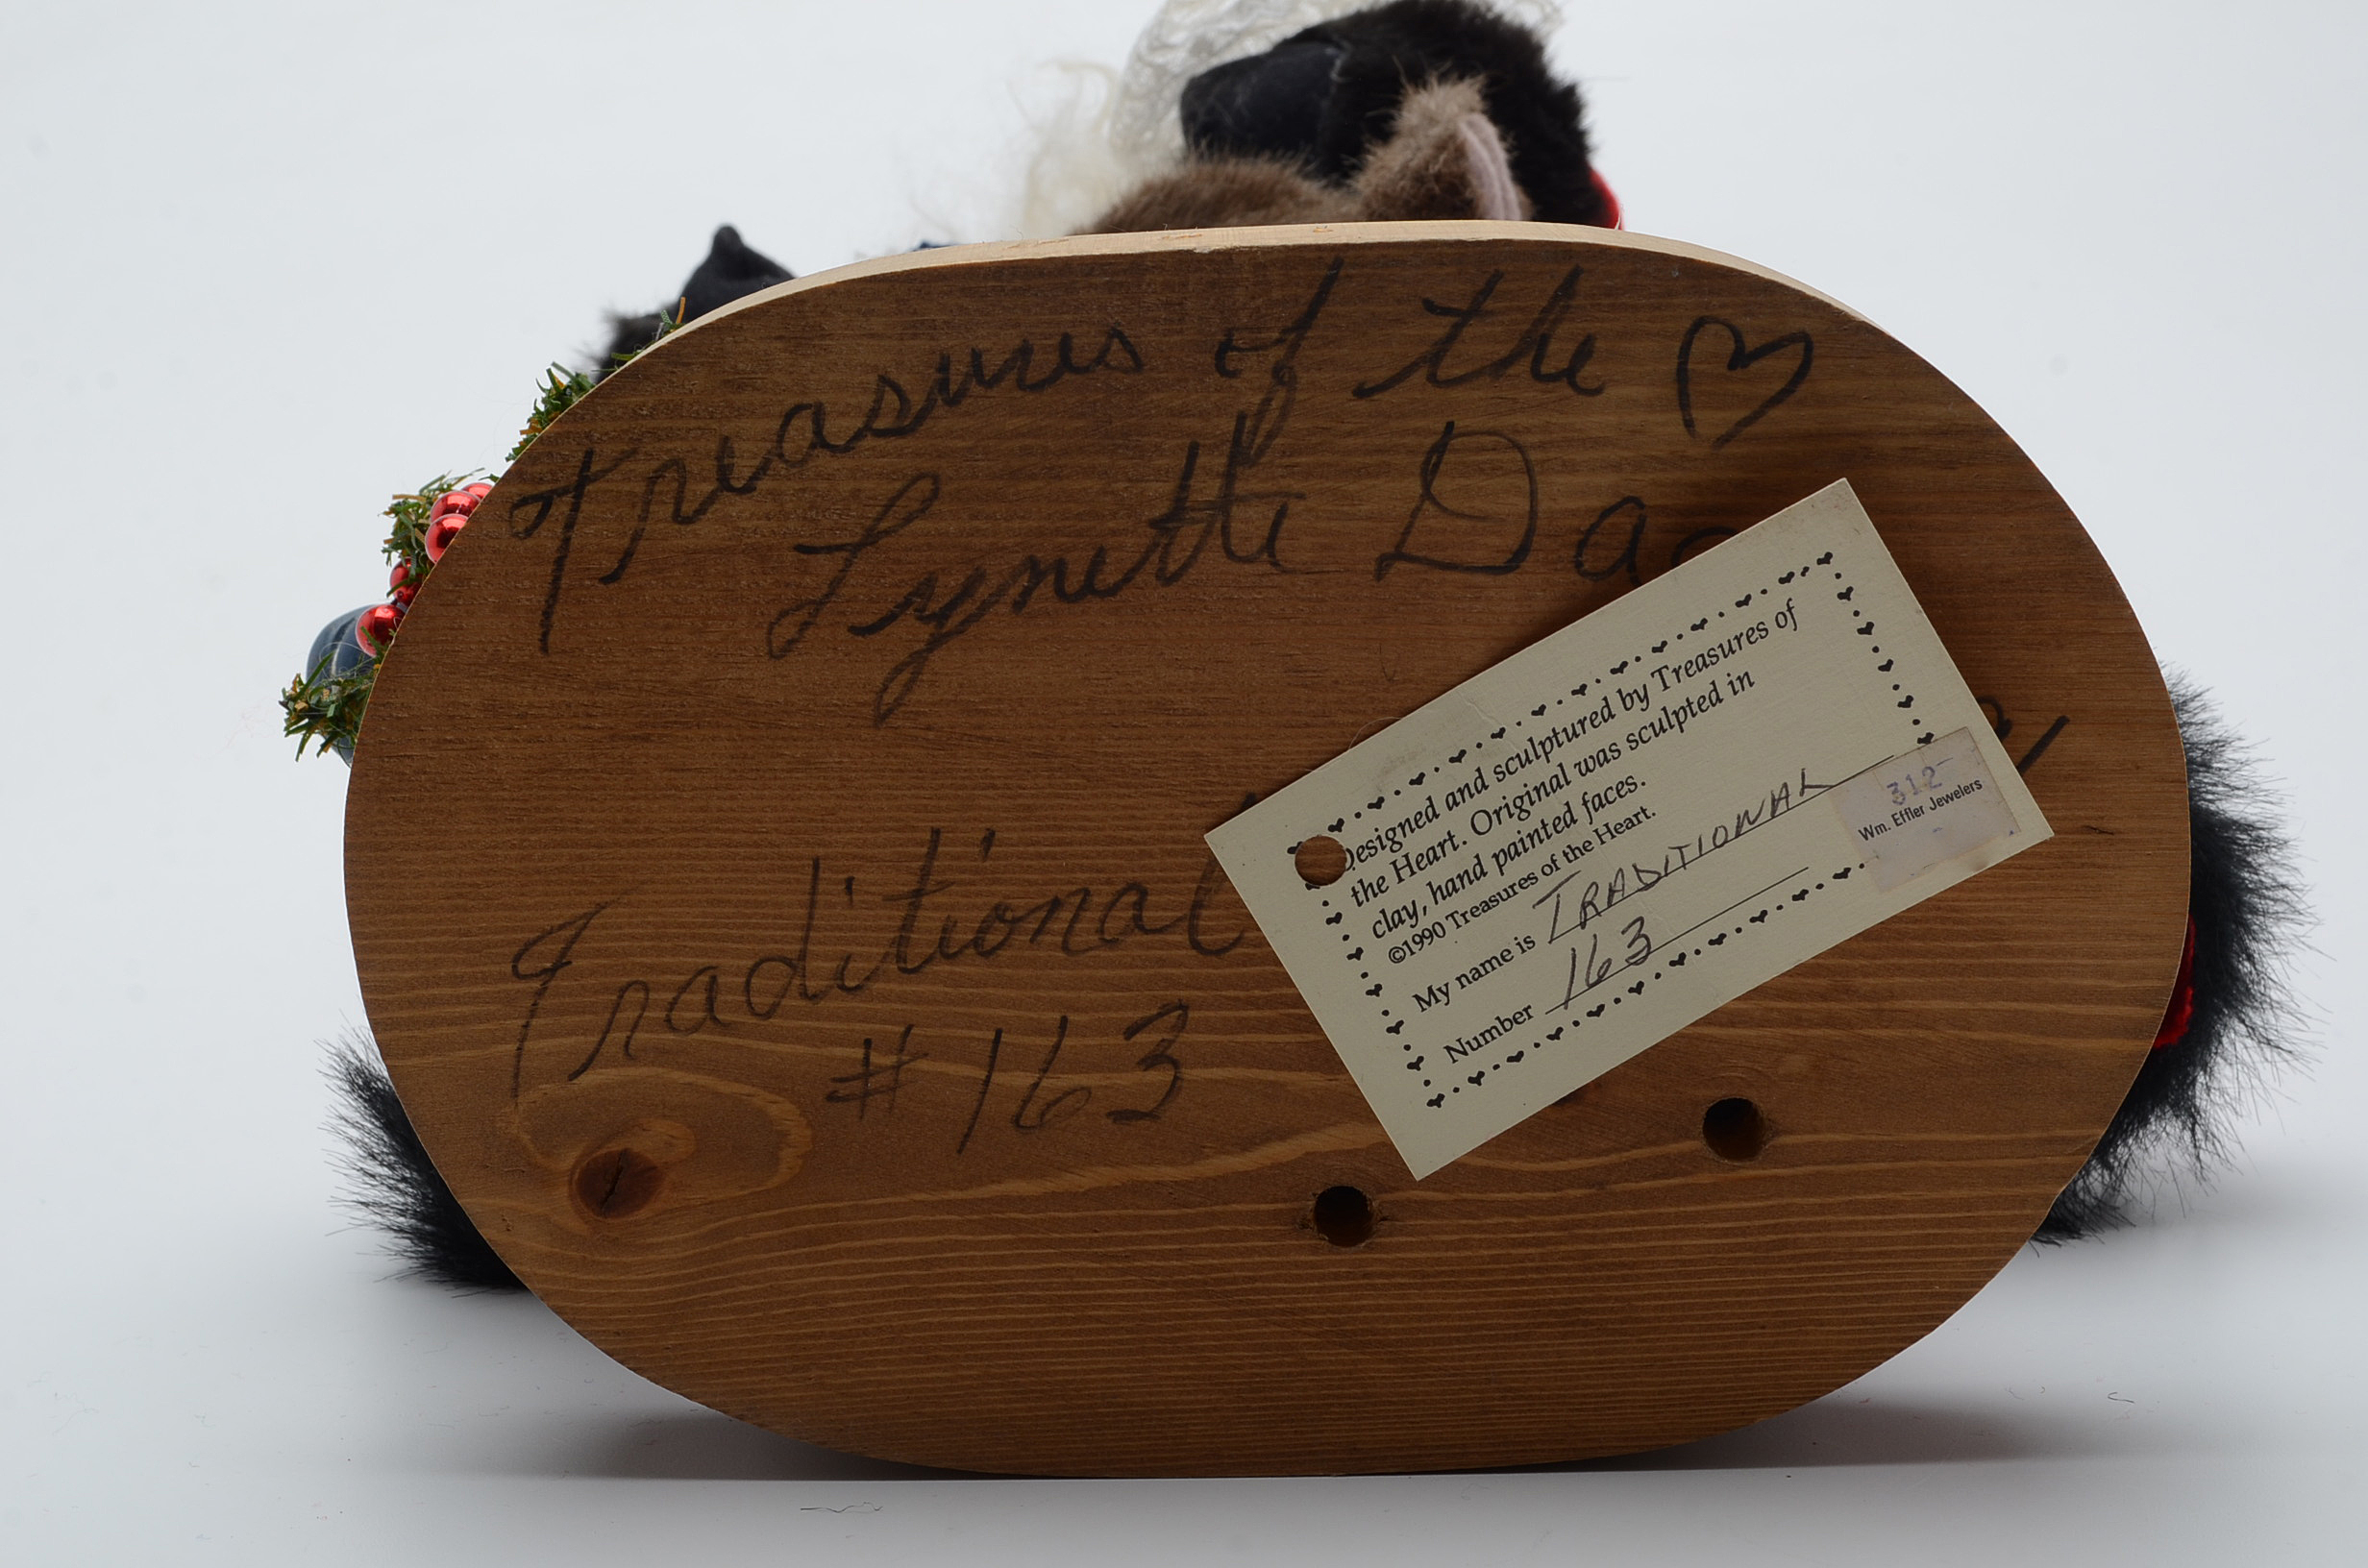 Treasures of the ♡
Lynette
Traditional
#163
Designed and sculptured by Treasures of
the Heart. Original was sculpted in
clay, hand painted faces.
©1990 Treasures of the Heart.
My name is TRADITIONAL
Number 163
312-
Wm. Effler Jewelers